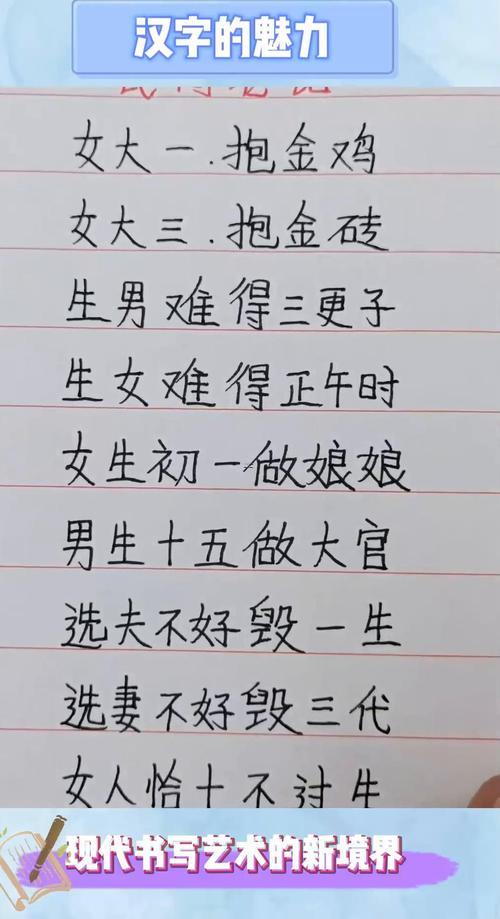 汉字的魅力
女大一.抱金鸡
女大三.抱金砖
生男难得三更子
生女难得正午时
女生初一做娘娘
男生十五做大官
选夫不好毁一生
选妻不好毁三代
女人恰十不过生
现代书写艺术的新境界